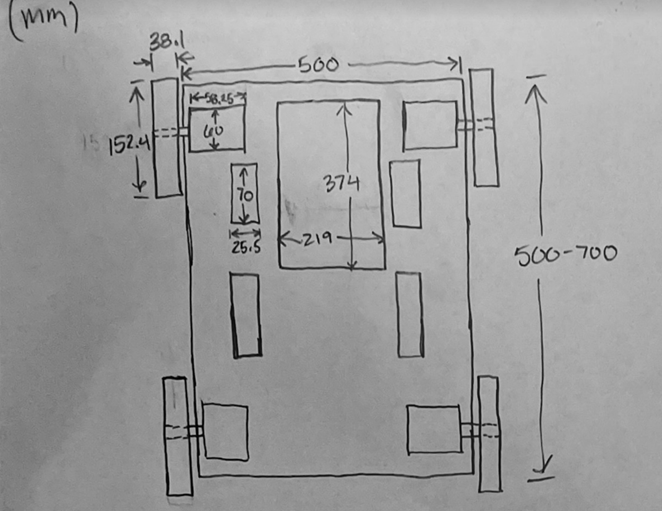 (mm)
38.1
500
58.25
60
152.4
70
374
25.5
219
500-700